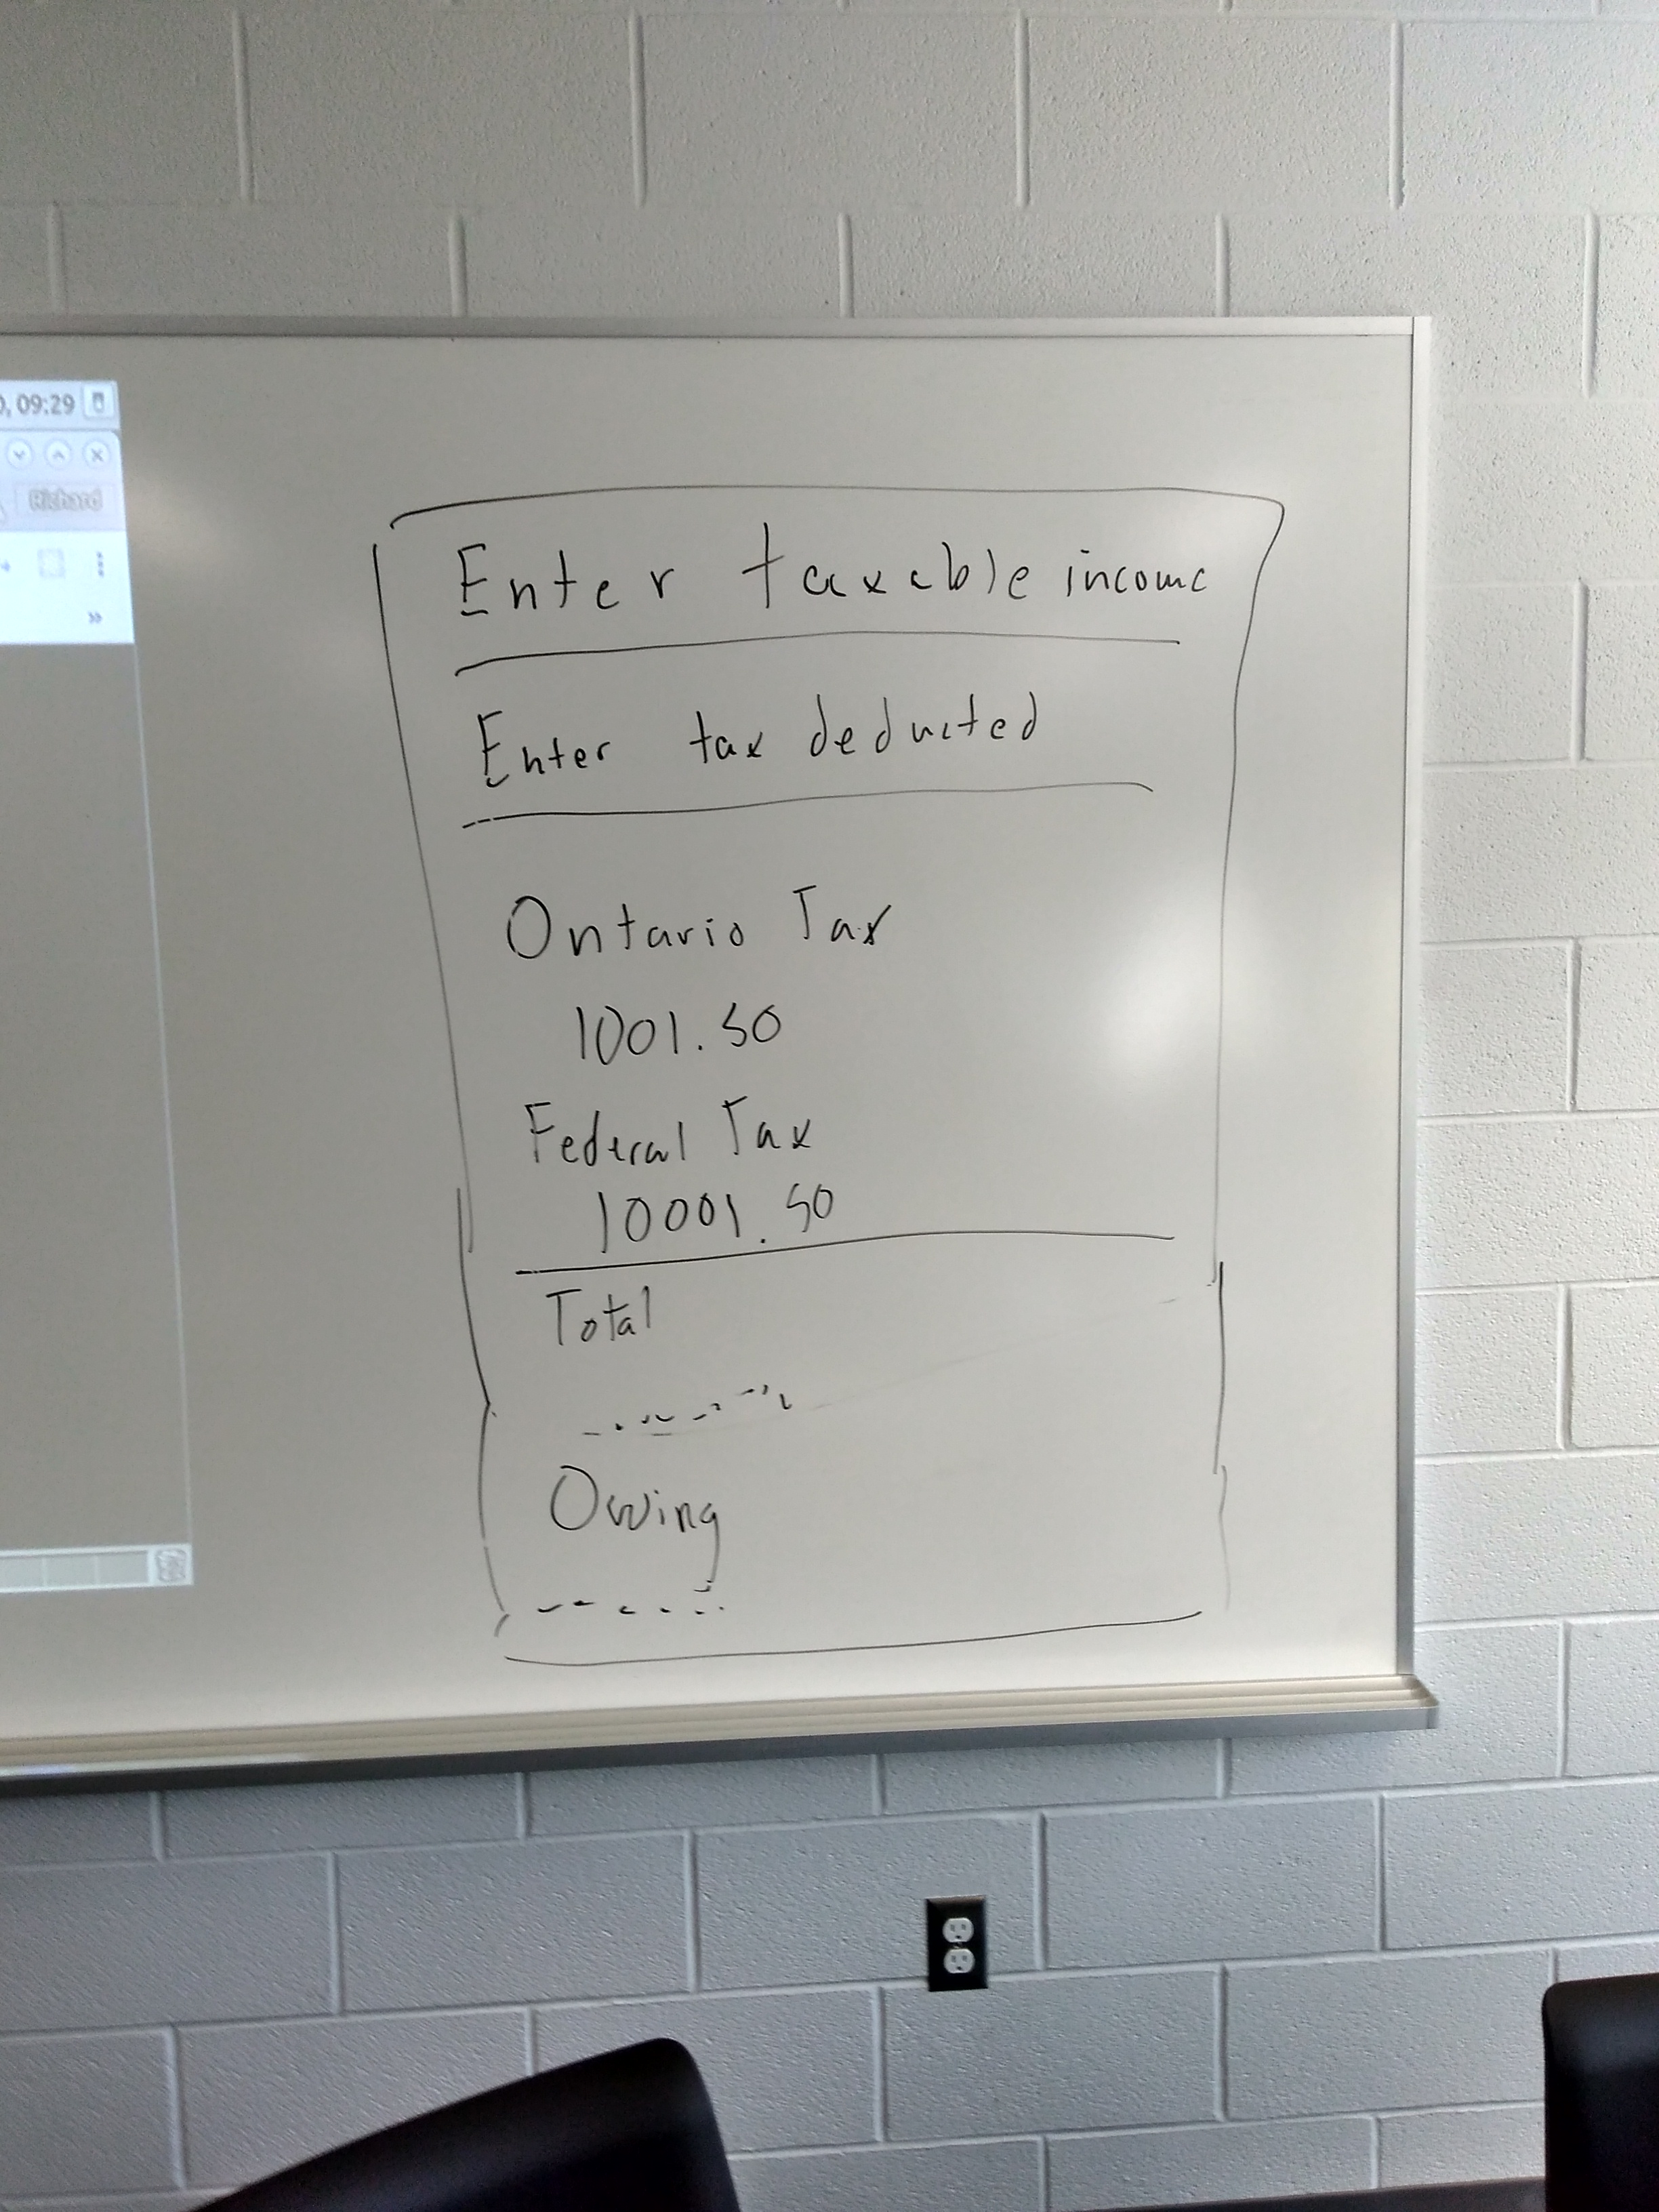 , 09:29
Richard
»
Enter taxable income
Enter tax deducted
Ontario Tax
1001.50
Federal Tax
10001.50
Total
Owing